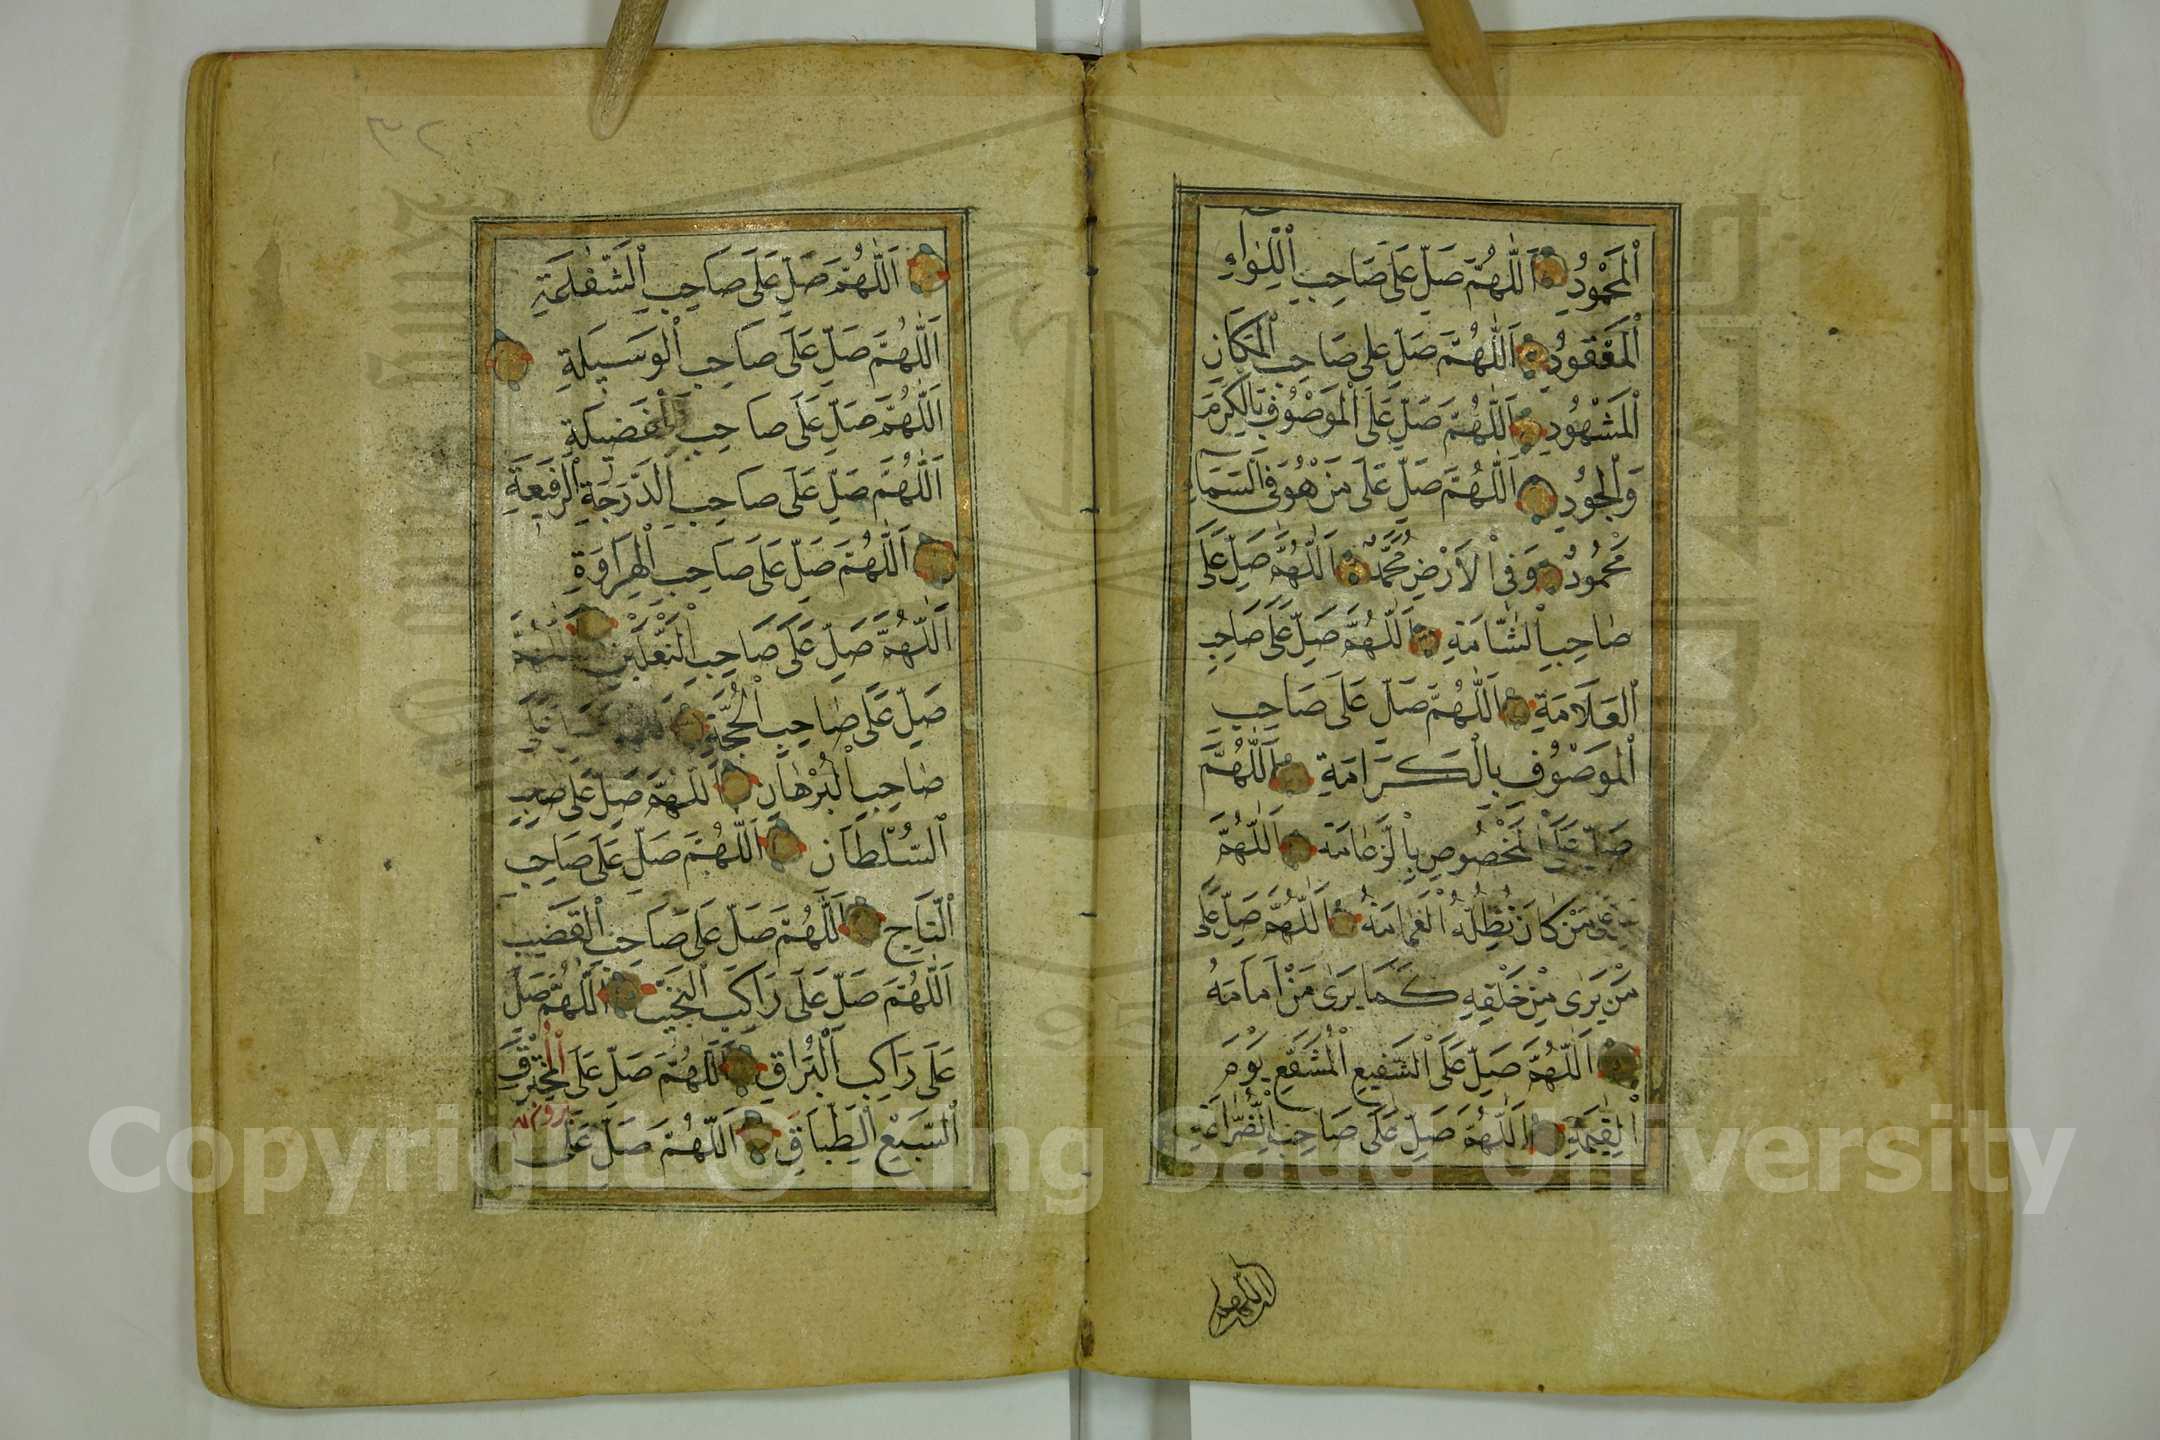 اَلْمَحْمُودُ اَللّٰهُمَّ صَلِّ عَلَى صَاحِبِ اللِّوَاءِ
اَلْمَعْقُودِ اَللّٰهُمَّ صَلِّ عَلَى صَاحِبِ الْمَكَانِ
اَلْمَشْهُودِ اَللّٰهُمَّ صَلِّ عَلَى الْمَوْصُوفِ بِالْكَرَمِ
وَالْجُودِ اَللّٰهُمَّ صَلِّ عَلَى مَنْ هُوَ فِى السَّمَاءِ
مَحْمُودٌ وَفِى الْاَرْضِ مُحَمَّدٌ اَللّٰهُمَّ صَلِّ عَلَى
صَاحِبِ الشَّامَةِ اَللّٰهُمَّ صَلِّ عَلَى صَاحِبِ
الْعَلَامَةِ اَللّٰهُمَّ صَلِّ عَلَى صَاحِبِ
الْمَوْصُوفِ بِالْكَرَامَةِ اَللّٰهُمَّ
صَلِّ عَلَى الْمَخْصُوصِ بِالزَّعَامَةِ اَللّٰهُمَّ
عَلَى مَنْ كَانَ تُظِلُّهُ الْغَمَامَةُ اَللّٰهُمَّ صَلِّ عَلَى
مَنْ يَرَى مِنْ خَلْفِهِ كَمَا يَرَى مَنْ اَمَامَهُ
اَللّٰهُمَّ صَلِّ عَلَى الشَّفِيعِ الْمُشَفَّعِ يَوْمَ
الْقِيٰمَةِ اَللّٰهُمَّ صَلِّ عَلَى صَاحِبِ الضَّرَاعَةِ
اللهم صل
٢٣
اَللّٰهُمَّ صَلِّ عَلَى صَاحِبِ الشَّفَاعَةِ
اَللّٰهُمَّ صَلِّ عَلَى صَاحِبِ الْوَسِيلَةِ
اَللّٰهُمَّ صَلِّ عَلَى صَاحِبِ الْفَضِيلَةِ
اَللّٰهُمَّ صَلِّ عَلَى صَاحِبِ الدَّرَجَةِ الرَّفِيعَةِ
اَللّٰهُمَّ صَلِّ عَلَى صَاحِبِ الْهِرَاوَةِ
اَللّٰهُمَّ صَلِّ عَلَى صَاحِبِ النَّعْلَيْنِ اَللّٰهُمَّ
صَلِّ عَلَى صَاحِبِ الْحُجَّةِ اَللّٰهُمَّ صَلِّ عَلَى
صَاحِبِ الْبُرْهَانِ اَللّٰهُمَّ صَلِّ عَلَى صَاحِبِ
السُّلْطَانِ اَللّٰهُمَّ صَلِّ عَلَى صَاحِبِ
التَّاجِ اَللّٰهُمَّ صَلِّ عَلَى صَاحِبِ الْقَضِيبِ
اَللّٰهُمَّ صَلِّ عَلَى رَاكِبِ النَّجِيبِ اَللّٰهُمَّ صَلِّ
عَلَى رَاكِبِ الْبُرَاقِ اَللّٰهُمَّ صَلِّ عَلَى الْمُخْتَرِقِ
السَّبْعِ الطِّبَاقِ اَللّٰهُمَّ صَلِّ عَلَى
Copyright © King Saud University